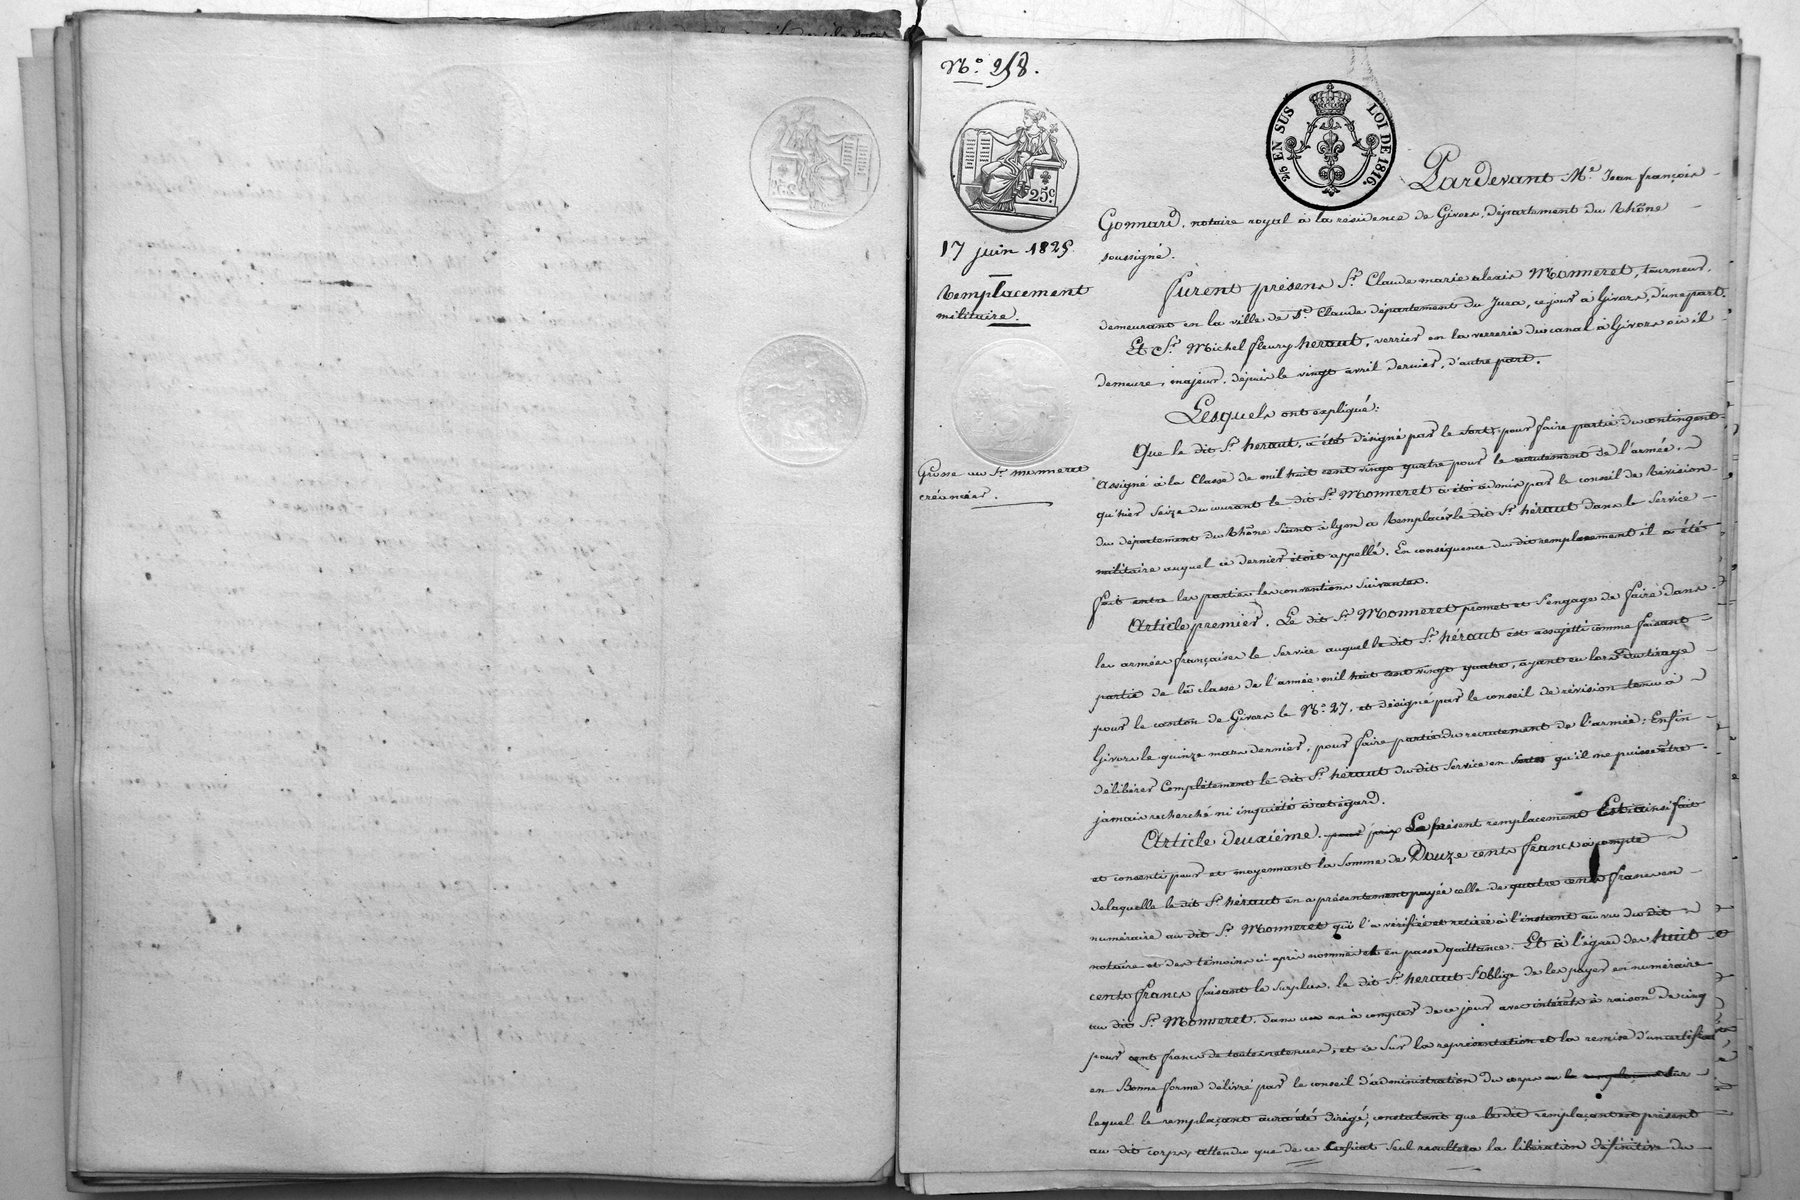 N.° 258.
25 EN SUS LOI DE 1816.
25c.
17 juin 1825.
Remplacement
militaire.
Grosse au Sr. Monneret
créancier.
Pardevant Me. Jean françois
Gonnard, notaire royal à la résidence de Givors, département du Rhône
soussigné.
furent présens Sr. Claude marie alexis Monneret, tourneur,
demeurant en la ville de St. Claude département du Jura, ce jour à Givors, d'une part.
Et Sr. Michel fleury heraut, verrier en la verrerie du canal à Givors où il
demeure, majeur, depuis le vingt avril dernier, d'autre part.
Lesquels ont expliqué:
Que le dit Sr. heraut, a été désigné par le sort, pour faire partie du contingent
assigné à la Classe de mil huit cent vingt quatre pour le recrutement de l'armée,
qu'hier seize du courant le dit Sr. Monneret a été admis par le conseil de Révision
du département du Rhône séant à lyon a Remplacer le dit Sr. héraut dans le service
militaire auquel ce dernier étoit appellé. En conséquence du dit remplacement il a été
fait entre les parties les conventions suivantes.
Article premier. Le dit Sr. Monneret promet et s'engage de faire dans
les armées françaises le service auquel le dit Sr. héraut est assujetti comme faisant
partie de la classe de l'année mil huit cent vingt quatre, ayant eu lors du tirage
pour le canton de Givors le N.° 27, et désigné par le conseil de révision tenu à
Givors le quinze mars dernier, pour faire partie du recrutement de l'armée; Enfin
délibérer Complètement le dit Sr. héraut du dit service en sorte qu'il ne puisse être
jamais recherché ni inquiété à cet égard.
Article deuxième. pour prix Le présent remplacement Est ainsi fait
et consenti pour et moyennant la somme de Douze cents francs à compte
delaquelle le dit Sr. héraut en a présentement payée celle de quatre cents francs en
numéraire au dit Sr. Monneret qui l'a vérifiée et retirée à l'instant au vu du dit
notaire et des témoins ci après nommés et en passe quittance. Et à l'égard des huit
cents francs faisant le surplus, le dit Sr. heraut s'oblige de les payer en numéraire
au dit Sr. Monneret, dans un an à compter de ce jour avec intérêts à raison de cinq
pour cent francs de toutes retenues, et ce sur la représentation et la remise d'un certificat
en Bonne forme délivré par le conseil d'administration du corps sur
lequel le remplaçant aura été dirigé, constatant que le dit remplaçant est présent
au dit corps, attendu que de ce cerficat seul resultera la libération définitive du